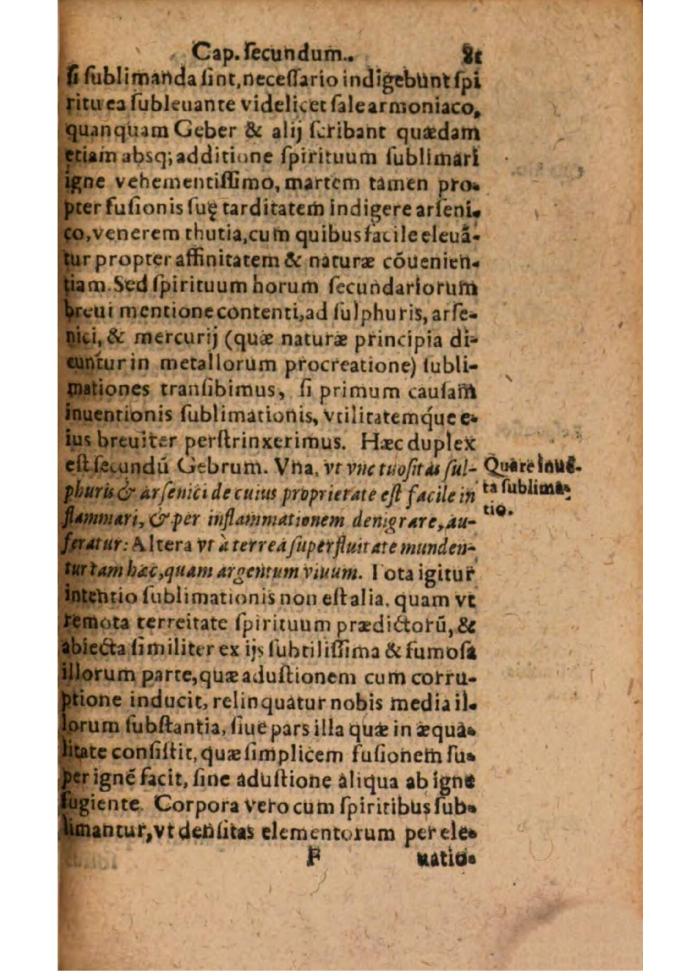 Cap. ſecundum.. 81
ſi ſublimanda ſint, neceſſario indigebunt ſpi
ritu ea ſubleuante videlicet ſale armoniaco,
quanquam Geber & alij ſcribant quædam
etiam absq; additione ſpirituum ſublimari
igne vehementiſſimo, martem tamen pro-
pter fuſionis ſuę tarditatem indigere arſeni-
co, venerem thutia, cum quibus facile eleuā-
tur propter affinitatem & naturæ cōuenien-
tiam. Sed ſpirituum horum ſecundariorum
breui mentione contenti, ad ſulphuris, arſe-
nici, & mercurij (quæ naturæ principia di-
cuntur in metallorum procreatione) ſubli-
mationes tranſibimus, ſi primum cauſam
inuentionis ſublimationis, vtilitatemque e-
ius breuiter perſtrinxerimus. Hæc duplex
eſt ſecundū Gebrum. Vna, vt vnctuoſitas ſul-
phuris & arſenici de cuius proprietate eſt facile in
flammari, & per inflammationem denigrare, au-
feratur: Altera vt à terrea ſuperfluitate munden-
tur tam hæc, quam argentum viuum. Tota igitur
intentio ſublimationis non eſt alia, quam vt
remota terreitate ſpirituum prædictorū, &
abiecta ſimiliter ex ijs ſubtiliſſima & fumoſa
illorum parte, quæ aduſtionem cum corru-
ptione inducit, relinquatur nobis media il-
lorum ſubſtantia, ſiue pars illa quæ in æqua-
litate conſiſtit, quæ ſimplicem fuſionem ſu-
per ignē facit, ſine aduſtione aliqua ab igne
fugiente. Corpora vero cum ſpiritibus ſub-
limantur, vt denſitas elementorum per ele-
F uatio-
Quare inuē-
ta ſublima-
tio.